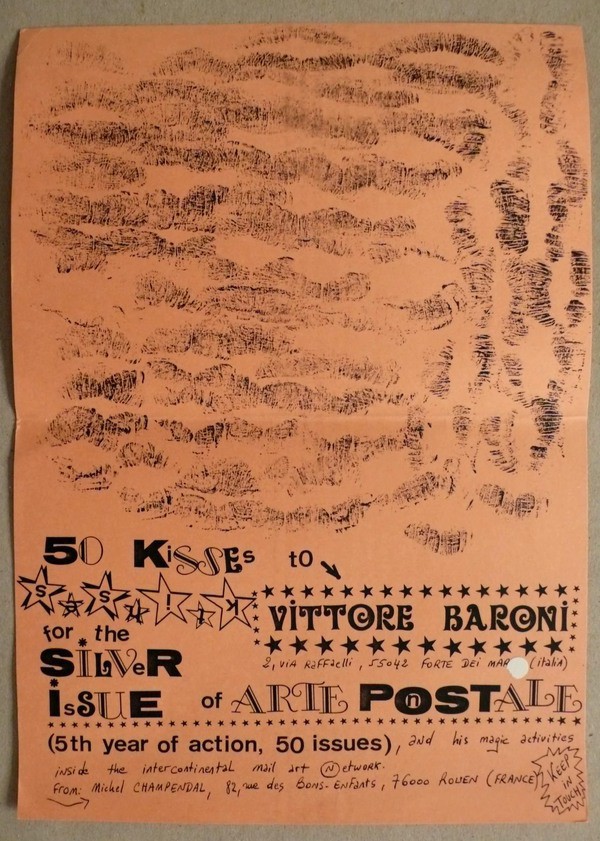 50 KiSSEs to
SSSiiK
VITTORE BARONI
for the
SILVER
2, ViA Raffaelli, 55042 FORTE DEI MAR (italia)
issUE of ARTE PosTALE
(5th year of action, 50 issues), and his magic activities
inside the intercontinental mail art Network.
From: Michel CHAMPENDAL, 82, rue des Bons-Enfants, 76000 ROUEN (FRANCE)
KEEP
iN
TOUCH